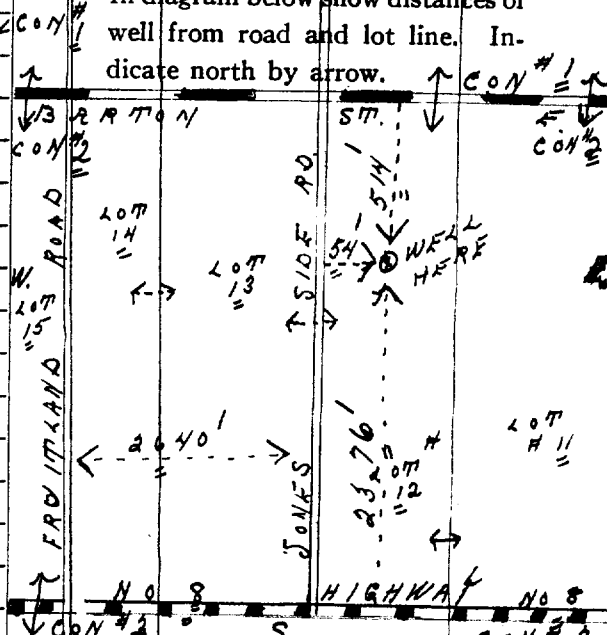 In diagram below show distances of
well from road and lot line. In-
dicate north by arrow.
CON #1
CON #1
BARTON ST.
CON #2
CON #2
LOT 14
LOT 13
W.
LOT 15
FRUITLAND ROAD
JONES SIDE RD
514'
54'
WELL HERE
2640'
2376'
LOT 12
LOT # 11
NO 8 HIGHWAY NO 8
CON #2
S